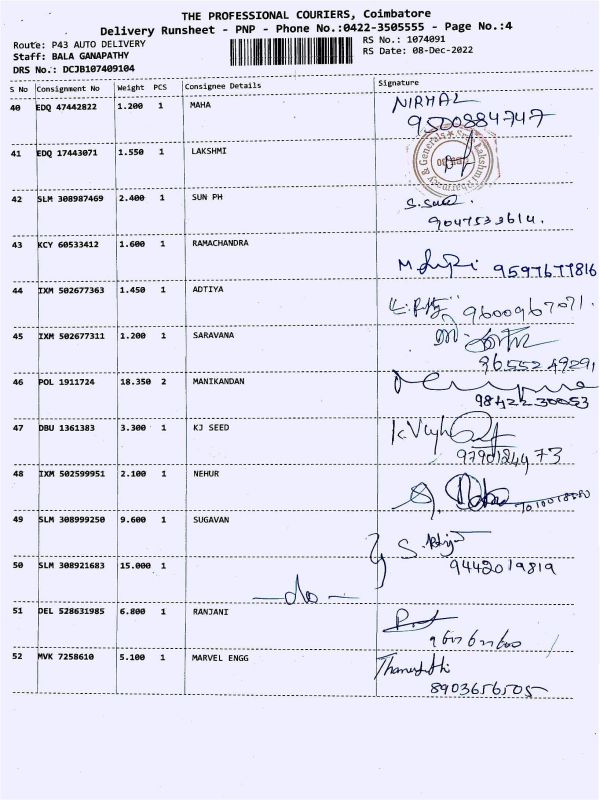 THE PROFESSIONAL COURIERS, Coimbatore
Delivery Runsheet - PNP - Phone No.:0422-3505555 - Page No.:4
Route: P43 AUTO DELIVERY
RS No.: 1074091
Staff: BALA GANAPATHY
RS Date: 08-Dec-2022
DRS No.: DCJB107409104
S No Consignment No Weight PCS Consignee Details Signature
40 EDQ 47442822 1.200 1 MAHA NIRMAL
9500884747
41 EDQ 17443071 1.550 1 LAKSHMI
42 SLM 308987469 2.400 1 SUN PH
9047533614.
43 KCY 60533412 1.600 1 RAMACHANDRA
9597677816
44 IXM 502677363 1.450 1 ADTIYA
9600967071.
45 IXM 502677311 1.200 1 SARAVANA
9655249291
46 POL 1911724 18.350 2 MANIKANDAN
9842230053
47 DBU 1361383 3.300 1 KJ SEED
9790124473
48 IXM 502599951 2.100 1 NEHUR
49 SLM 308999250 9.600 1 SUGAVAN
50 SLM 308921683 15.000 1
9442019819
—do—
51 DEL 528631985 6.800 1 RANJANI
52 MVK 7258610 5.100 1 MARVEL ENGG
8903656505